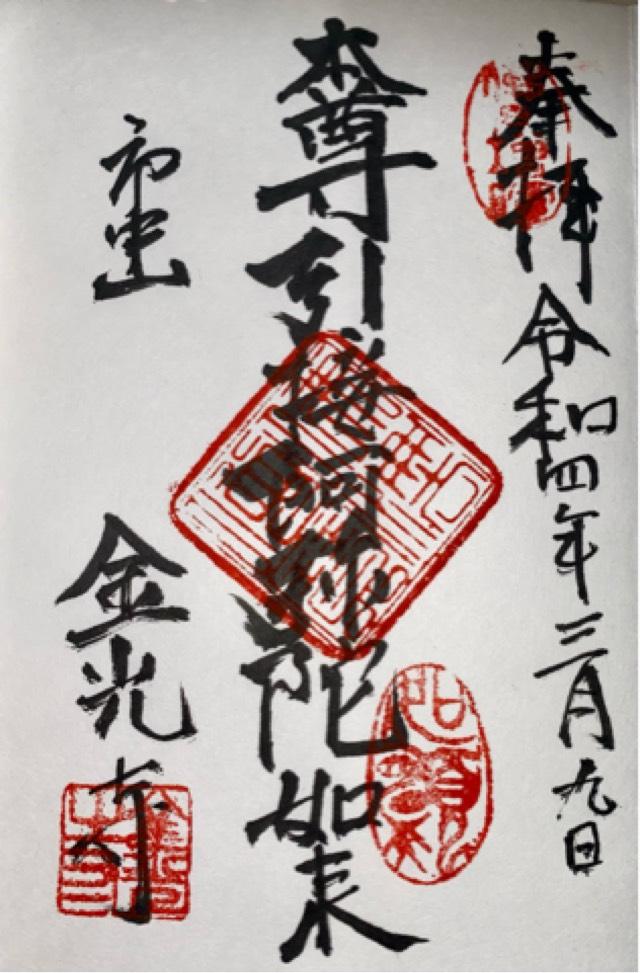 奉拝 令和四年三月九日
本尊引接阿弥陀如来
市中山
金光寺